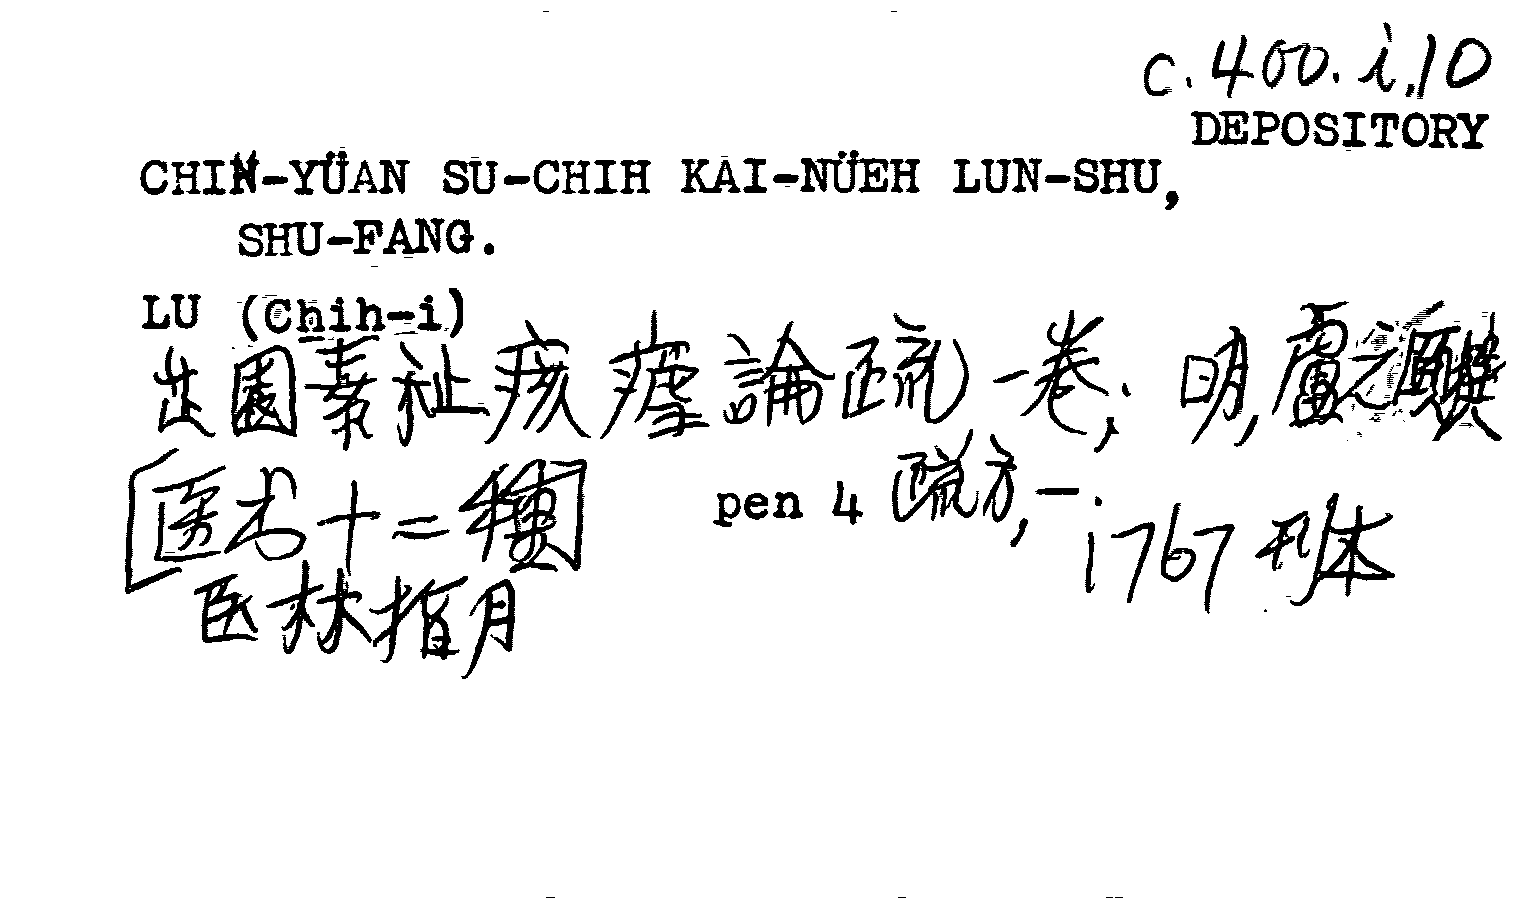 C. 400. i. 10
DEPOSITORY
CHIN-YÜAN SU-CHIH KAI-NÜEH LUN-SHU,
SHU-FANG.
LU (Chih-i)
園素祉痎瘧論疏一卷; 明, 盧之頤
[医书十二種] pen 4 疏方, 一.
医林指月 1767 刊本